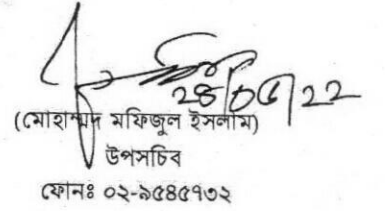 28/06/22
(মোহাম্মদ মফিজুল ইসলাম)
উপসচিব
ফোনঃ ০২-৯৫৪৫৭৩২